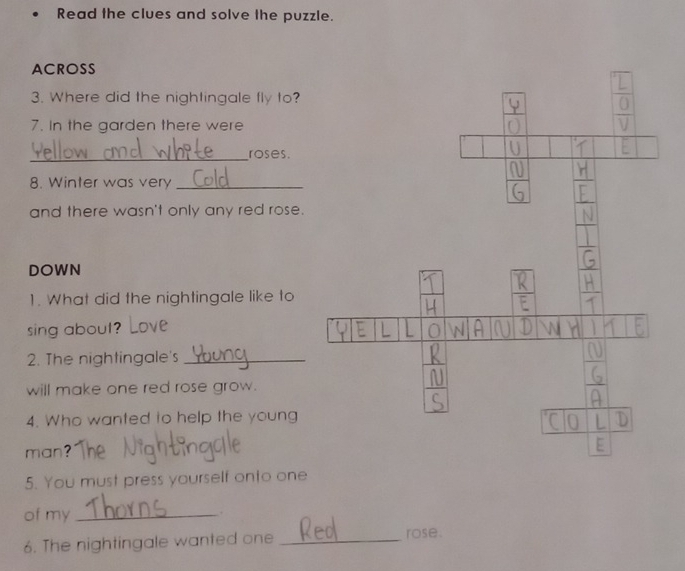 • Read the clues and solve the puzzle.
ACROSS
3. Where did the nightingale fly to?
7. In the garden there were
Yellow and white roses.
8. Winter was very Cold
and there wasn't only any red rose.
DOWN
1. What did the nightingale like to
sing about? Love
2. The nightingale's Young
will make one red rose grow.
4. Who wanted to help the young
man? The Nightingale
5. You must press yourself onto one
of my Thorns.
6. The nightingale wanted one Red rose.
LOVE
YOUNG
THENIGHTINGALE
THORNS
RED
YELLOWANDWHITE
COLD